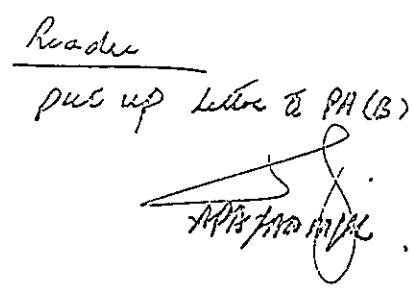 Reader
put up letter to PA(B)